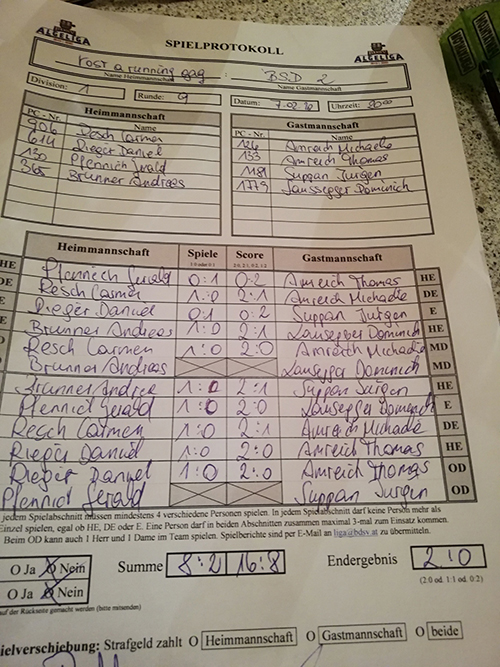 ALGELIGA SPIELPROTOKOLL ALGELIGA
Post a running gag : BSD 2
Name Heimmannschaft Name Gastmannschaft
Division: 1 Runde: 9 Datum: 7.02.20 Uhrzeit:
Heimmannschaft Gastmannschaft
PC - Nr. Name PC - Nr. Name
906 Resch Carmen 126 Amreich Michaela
614 Rieger Daniel 133 Amreich Thomas
130 Pfennich Gerald 1181 Suppan Jürgen
365 Brunner Andreas 1779 Lausegger Dominich
Heimmannschaft Spiele Score Gastmannschaft
1:0 oder 0:1 2:0, 2:1, 0:2, 1:2
HE Pfennich Gerald 0:1 0:2 Amreich Thomas HE
DE Resch Carmen 1:0 2:1 Amreich Michaela DE
E Rieger Daniel 0:1 0:2 Suppan Jürgen E
HE Brunner Andreas 1:0 2:1 Lausegger Dominich HE
MD Resch Carmen 1:0 2:0 Amreich Michaela MD
Brunner Andreas Lausegger Dominich MD
Brunner Andrea 1:0 2:1 Suppan Jürgen HE
Pfennich Gerald 1:0 2:0 Lausegger Dominich E
Resch Carmen 1:0 2:1 Amreich Michaela DE
Rieger Daniel 1:0 2:0 Amreich Thomas HE
Rieger Daniel 1:0 2:0 Amreich Thomas OD
Pfennich Gerald Suppan Jürgen OD
jedem Spielabschnitt müssen mindestens 4 verschiedene Personen spielen. In jedem Spielabschnitt darf keine Person mehr als
Einzel spielen, egal ob HE, DE oder E. Eine Person darf in beiden Abschnitten zusammen maximal 3-mal zum Einsatz kommen.
Beim OD kann auch 1 Herr und 1 Dame im Team spielen. Spielberichte sind per E-Mail an liga@bdsv.at zu übermitteln.
O Ja O Nein Summe 8:2 16:8 Endergebnis 2:0
O Ja O Nein (2:0 od. 1:1 od. 0:2)
auf der Rückseite gemacht werden (bitte mitsenden)
ielverschiebung: Strafgeld zahlt O Heimmannschaft O Gastmannschaft O beide